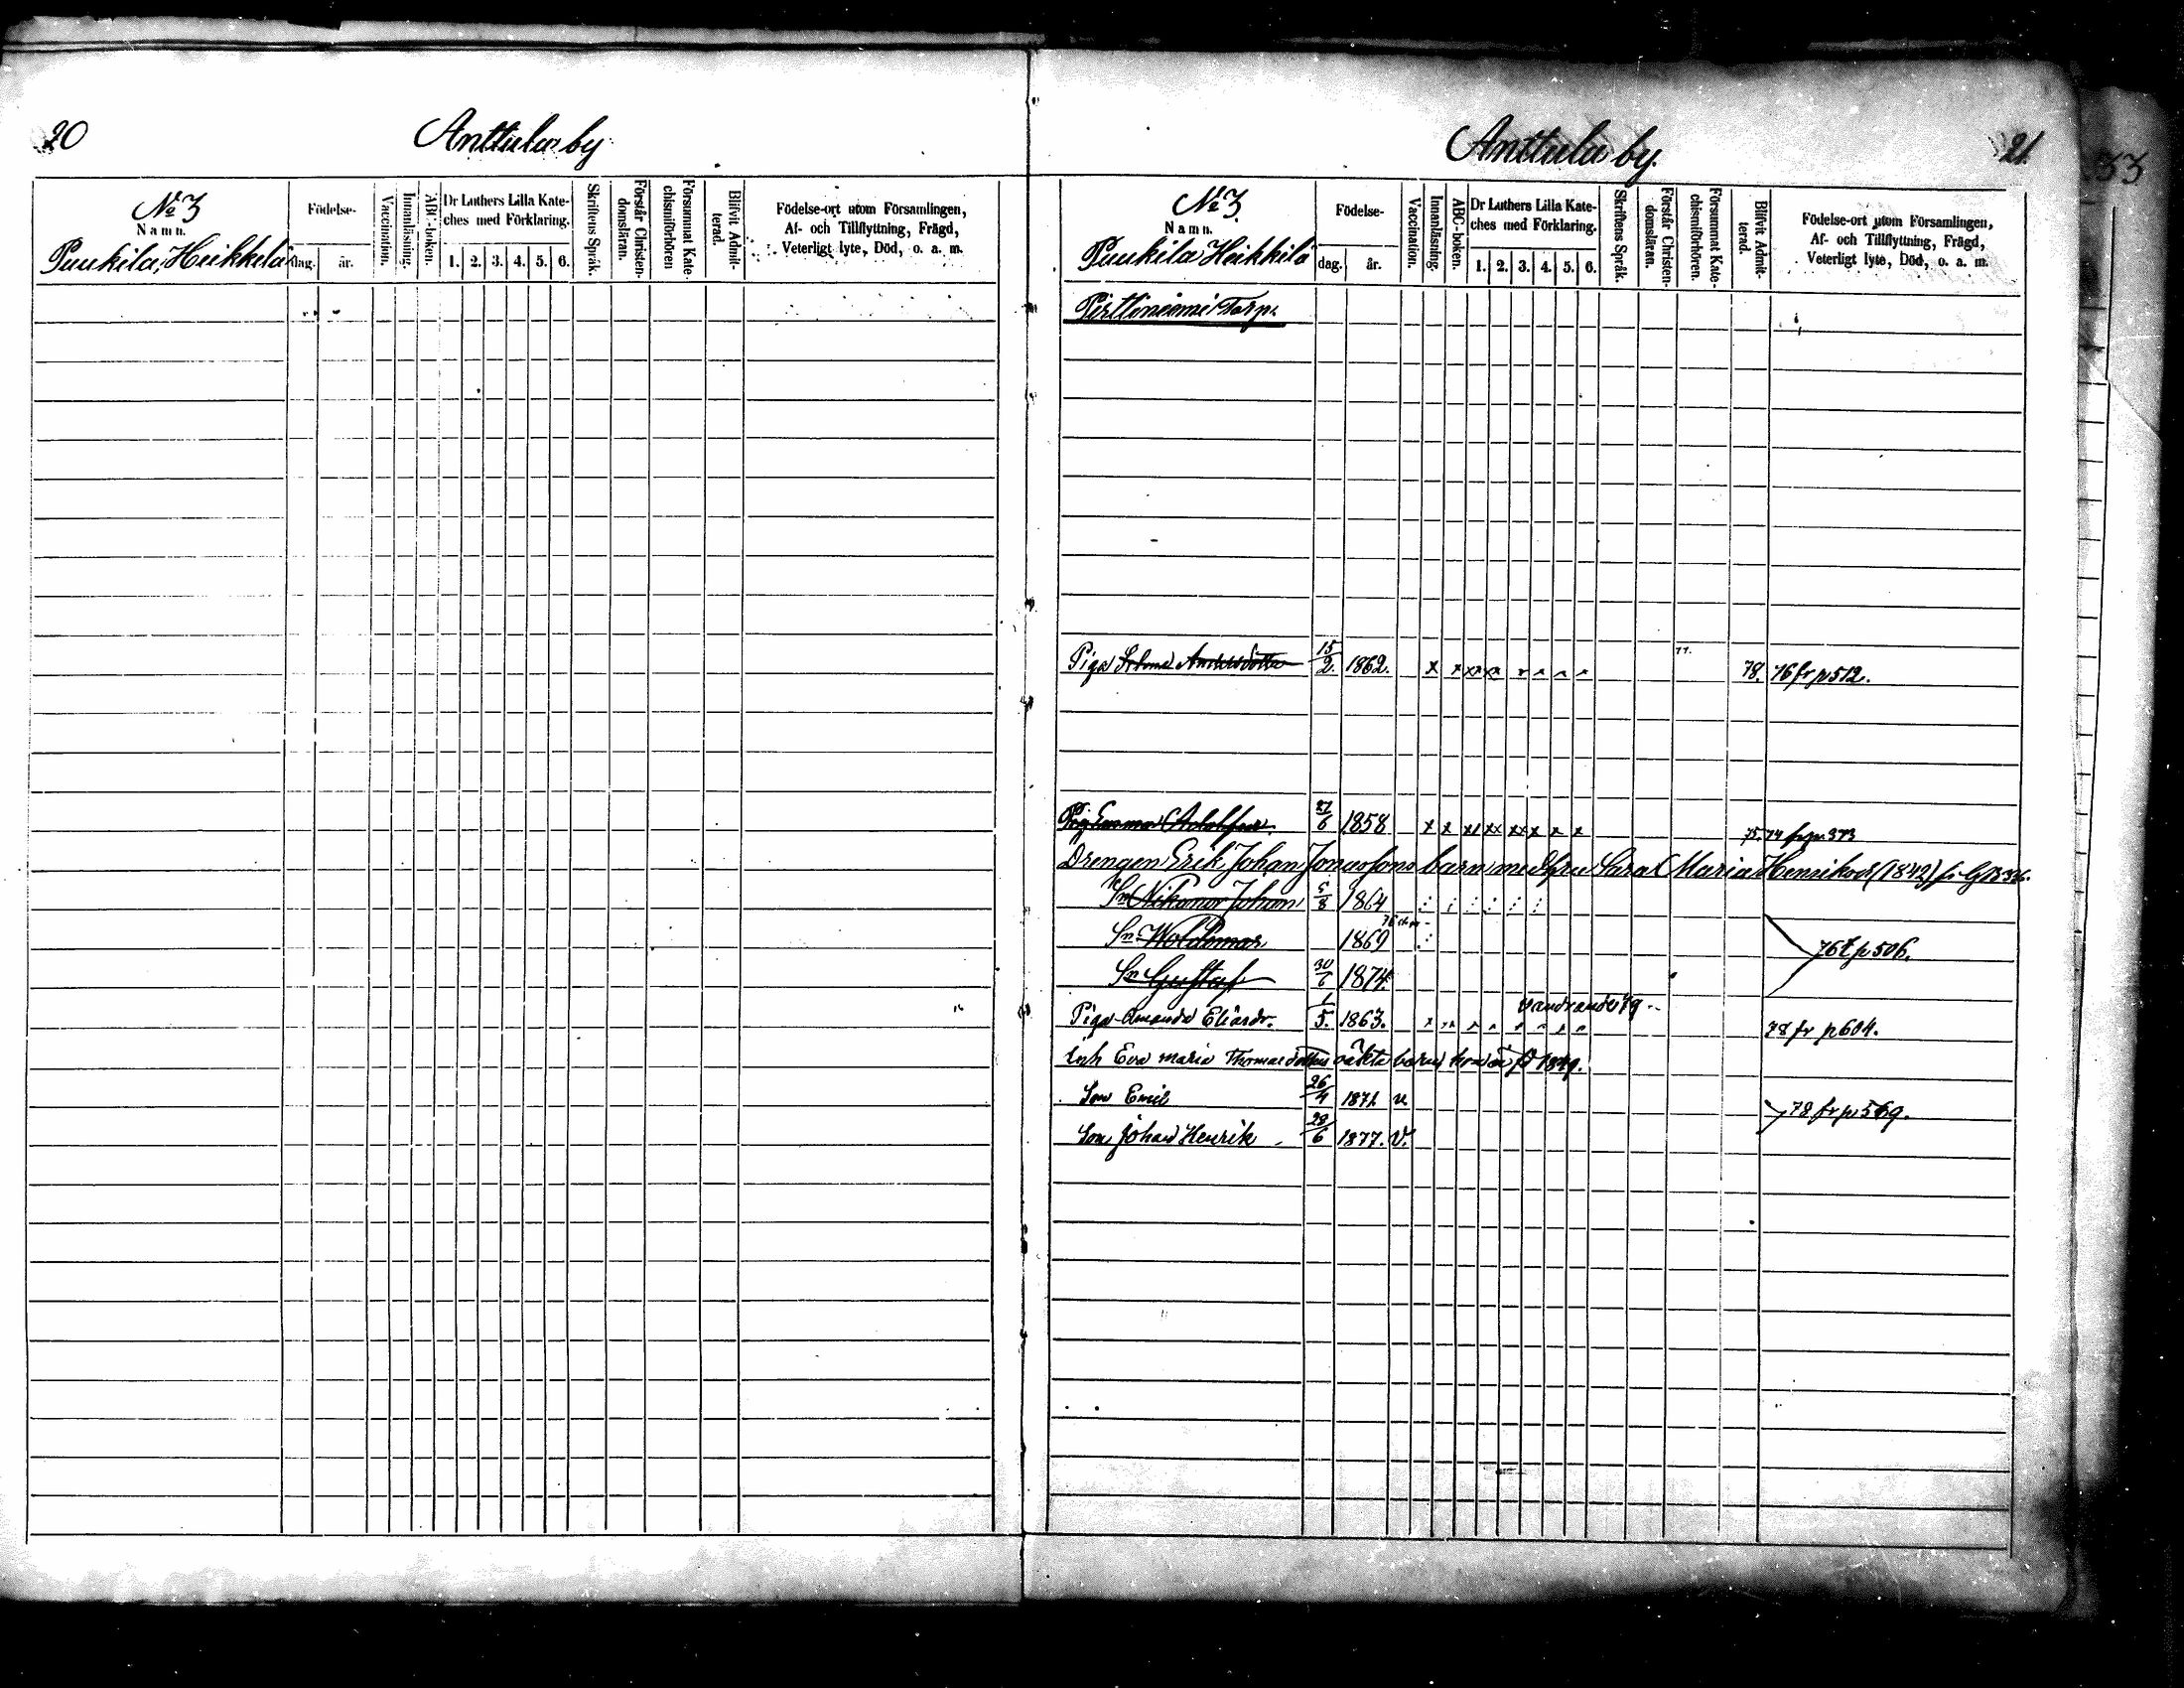 20
Anttula by
No 3
Namn.
Puukila, Heikkilä
Födelse-
dag.
år.
Vaccination.
Innanläsning.
ABC-boken.
Dr Luthers Lilla Kate-
ches med Förklaring.
1. 2. 3. 4. 5. 6.
Skriftens Språk.
Förstår Christen-
domsläran.
Försummat Kate-
chismiförhören
Blifvit Admit-
terad.
Födelse-ort utom Församlingen,
Af- och Tillflyttning, Frägd,
Veterligt lyte, Död, o. a. m.
Anttula by.
21.
33
No 3.
Namn.
Puukila Heikkilä
Födelse-
dag.
år.
Vaccination.
Innanläsning.
ABC-boken.
Dr Luthers Lilla Kate-
ches med Förklaring.
1. 2. 3. 4. 5. 6.
Skriftens Språk.
Förstår Christen-
domsläran.
Försummat Kate-
chismiförhören.
Blifvit Admit-
terad.
Födelse-ort utom Församlingen,
Af- och Tillflyttning, Frägd,
Veterligt lyte, Död, o. a. m.
Pirttiniemi Torp.
Piga Andersdotter 15/2. 1862. x x xx xx 77. 78. 76 fr p 512.
Pig Emma Adolfsd. 27/6 1858 x x xx xx xx x x x 75. 74 fr p. 373
Drengen Erik Johan Jonassons barn med hru Sara Maria Henriksd (1842)
Sn Nikanor Johan 5/8 1864
Sn Woldemar 1869 76 t p 506.
Sn Gustaf 30/6 1874
vandrande 79
Piga Amanda Eliasdr. 1/5. 1863. 78 fr p 604.
Inh Eva Maria Thomasdotters oäkta barn 1849.
Son Emil 26/4 1871 v 78 fr p 569.
Son Johan Henrik 28/6 1877. V.